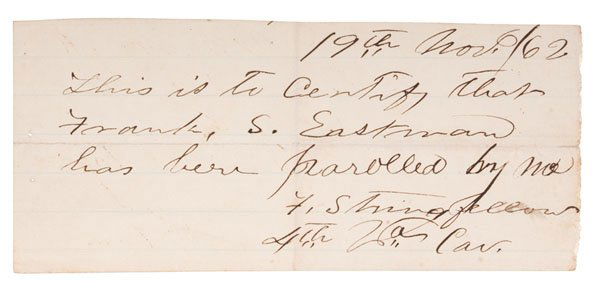 19th Nov. /62
This is to Certify that
Frank, S. Eastman
has been parolled by me
F. Stringfellow
4th Va. Cav.